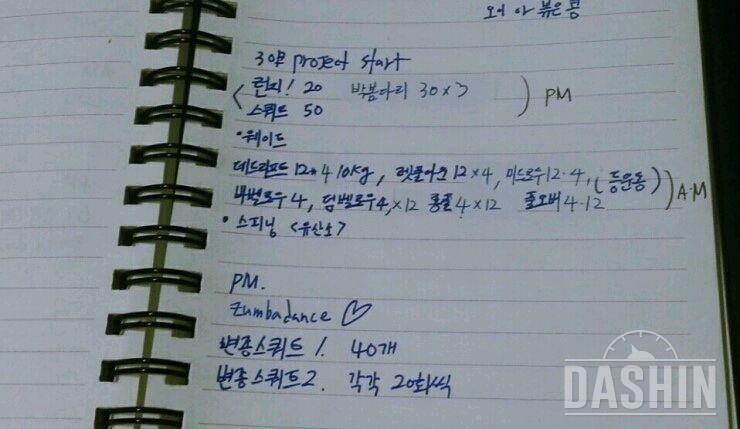 오이 아 볶은콩
30일 project start
런지! 20 박봄다리 30×3
스쿼트 50 PM
·웨이트
데드리프트 12*4 10kg, 렛풀다운 12×4, 미드로우 12·4, (등운동)
바벨로우 4, 덤벨로우 4,×12 롱풀 4×12 풀오버 4·12 A.M
·스피닝 <유산소>
PM.
Zumbadance ♡
변종스쿼트 1. 40개
변종스쿼트 2. 각각 20회씩
DASHIN